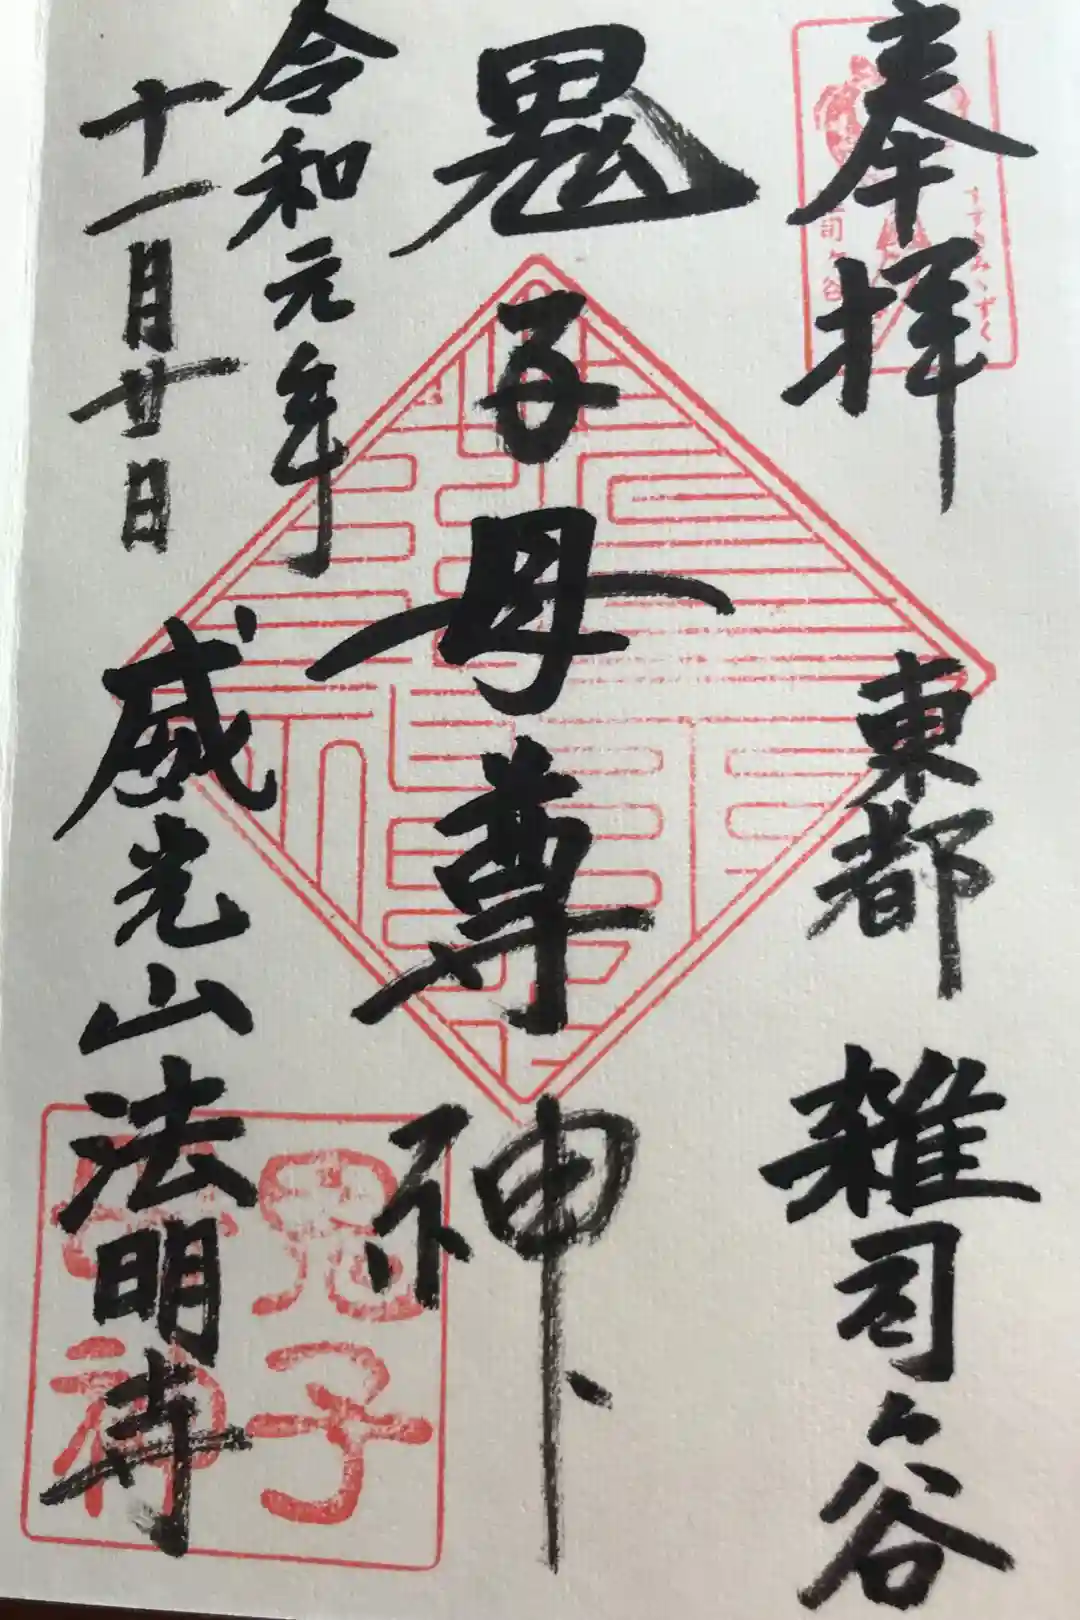 奉拝
東都 雑司ヶ谷
すすきみゝずく
司ヶ谷
鬼子母尊神
令和元年
十一月廿日
威光山法明寺
鬼子
母神